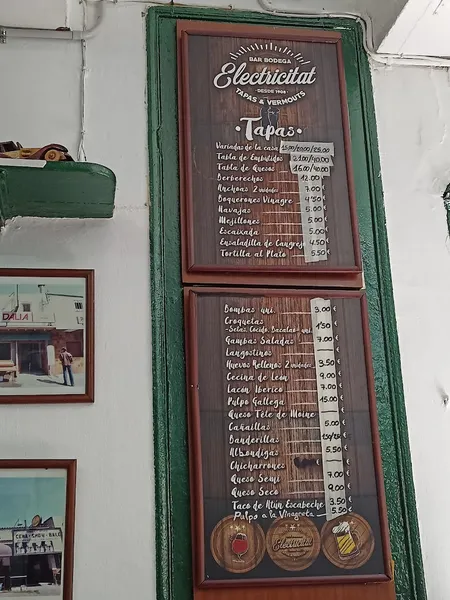 BAR BODEGA
Electricitat
-DESDE 1908-
TAPAS & VERMOUTS
Tapas
Variadas de la casa 15.00/20.00/25.00
Tabla de Embutidos 21.00/40.00
Tabla de Quesos 16.00/40.00
Berberechos 12.00
Anchoas 2 unidades 7.00
Boquerones Vinagre 4.50
Navajas 8.00
Mejillones 5.00
Escaixada 5.00
Ensaladilla de Cangrejo 4.50
Tortilla al Plato 5.50
Bombas uni. 3.00 €
Croquetas
-Setas, Cocido, Bacalao- uni. 1'30 €
Gambas Saladas 7.00 €
Langostinos
Huevos Rellenos 2 unidades 3.50 €
Cecina de León 9.00 €
Lacón Ibérico 7.00 €
Pulpo Gallega 15.00 €
Queso Tête de Moine
Cañaillas 5.00 €
Banderillas
Albondigas 5.50 €
Chicharrones
Queso Semi 7.00 €
Queso Seco 9.00 €
Taco de Atún Escabeche 3.50 €
Pulpo a la Vinagreta 5.50 €
Electricitat
DALIA